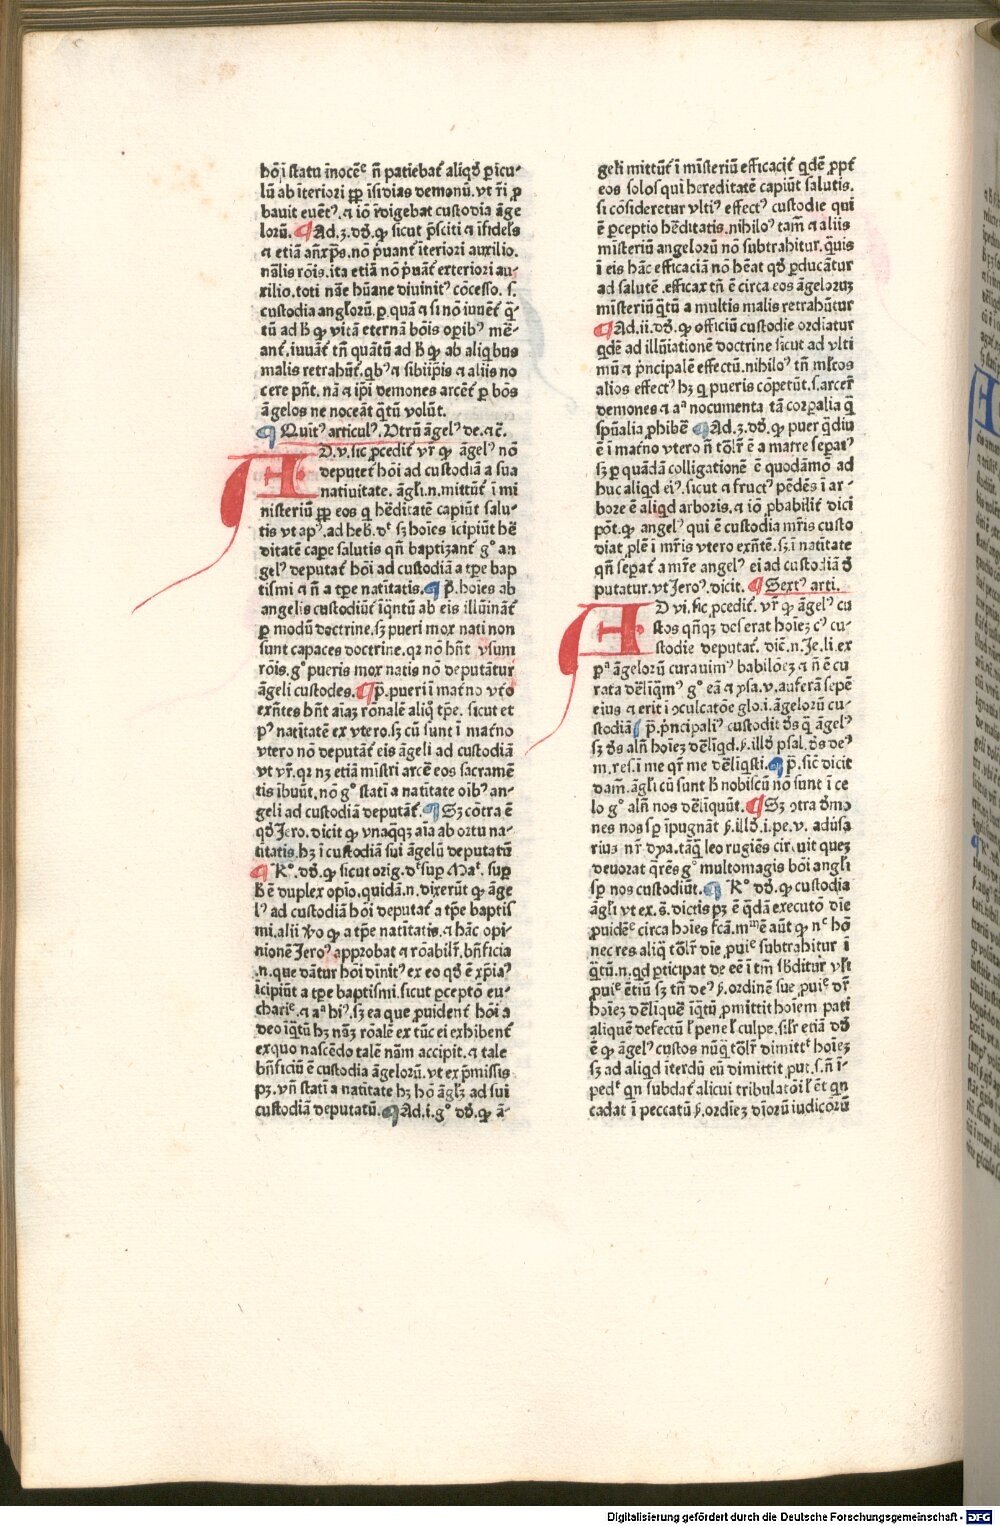 hōī ī statu īnocēᵉ n̄ patiebat᷑ aliqđ ꝑicu⸗
lū ab īteriori ꝓp̱ īsidias demonū. vt r̄i ꝓ
bauit euēt᾽. ⁊ iō r̄digebat custodia āge
lorū. ¶ Ad .3. dđ. ꝙ sicut p̄sciti ⁊ īfideles
⁊ etiā an̄xp̄s. nō p̄uant᷑ īteriori auxilio.
nālis rōis. ita etiā nō p̄uāt᷑ exteriori au⸗
xilio. toti nāe hūane diuinit᾽ cōcesso. s.
custodia angl̄orū. ꝑ quā ⁊ si nō iuuēt᷑ q̄⸗
tū ad ħ ꝙ vitā eternā bōis oꝑib᾽ mē⸗
ant᷑. iuuāt᷑ tn̄ quātū ad ħ ꝙ ab aliqbus
malis retrahūt᷑. qb᾽ ⁊ sibiip̄is ⁊ aliis no
cere pn̄t. nā ⁊ ip̄i demones arcēt᷑ ꝑ bōs
āgelos ne noceāt q̄tū volūt.
¶ Quīt᾽ articul᾽. Vtrū āgel᾽ de. ⁊ c̄.
AD .v. sic ꝓcedit᷑ vr̄ ꝙ āgel᾽ nō
deputet᷑ hōi ad custodiā a sua
natiuitate. āgl̄i. n. mittūt᷑ ī mi
nisteriū ꝓp̱ eos q hēditatē capiūt salu⸗
tis vt ap᾽. ad heb̄. dᵗ sꝫ hoīes īcipiūt hē
ditatē cape salutis qn̄ baptizant᷑ gᵒ an
gel᾽ deputat᷑ hōi ad custodiā a tꝑe bap
tismi ⁊ n̄ a tꝑe natītatis. ¶ p̄. hoīes ab
angelis custodiūt᷑ īqntū ab eis illūināt᷑
ꝑ modū doctrine. sꝫ pueri mox nati non
sunt capaces doctrine. qꝛ nō hn̄t vsum
rōis. gᵒ pueris mox natis nō deputātur
āgeli custodes. ¶ p̄. pueri ī mat᷑no vt᷑o
exn̄tes hn̄t aīaꝫ rōnalē aliq̊ tꝑe. sicut et
p᾽ natītatē ex vtero. sꝫ cū sunt ī mat᷑no
vtero nō deputāt᷑ eis āgeli ad custodiā
vt vr̄. qꝛ nꝫ etiā mīstri arcē eos sacramē
tis ībuūt. nō gᵒ statī a natītate oīb᾽ an⸗
geli ad custodiā deputāt᷑. ¶ Sꝫ cōtra ē
qđ Jero. dicit ꝙ vnaqq̄ꝫ aīa ab ortu na⸗
titatis. hꝫ ī custodiā sui āgelū deputatū
¶ Rᵒ. dđ. ꝙ sicut orig. dᵗ sup̱ Maᵗ. sup̱
ħ ē duplex opīo. quidā. n. dixerūt ꝙ āge
l᾽ ad custodiā hōi deputat᷑ a tꝑe baptis
mi. alii v̊o ꝙ a tꝑe natītatis. ⁊ hāc opi⸗
nionē Jero᾽ approbat ⁊ rōabilr̄. bn̄ficia
.n. que dātur hōi diuīt᾽ ex eo qđ ē xp̄ia᾽
īcipiūt a tꝑe baptismi. sicut ꝑceptō eu⸗
chariᵉ. ⁊ aᵃ hi᾽. sꝫ ea que ꝓuident᷑ hōi a
deo īq̄tū hꝫ nāꝫ rōalē ex tūc ei exhibent᷑
exquo nascēdo talē nām accipit. ⁊ tale
bn̄ficiū ē custodia āgelorū. vt ex p̄missis
pꝫ. vn̄ statī a natītate hꝫ hō āgl̄ꝫ ad sui
custodiā deputatū. ¶ Ad .i. gᵒ dđ. ꝙ ā⸗
geli mittūt᷑ ī mīsteriū efficacit᷑ qdē ꝓpt᷑
eos solos qui hereditatē capiūt salutis.
si cōsideretur vlti᾽ effect᾽ custodie qui
ē ꝑceptio hēditatis. nihilo᾽ tam̄ ⁊ aliis
misteriū angelorū nō subtrahitur. q̄uis
ī eis hāc efficaciā nō heāt qđ ꝑducātur
ad salutē. efficax tn̄ ē circa eos āgeloruꝫ
misteriū q̄tū a multis malis retrahūtur
¶ Ad .ii. dđ. ꝙ officiū custodie ordiatur
qdē ad illūiationē doctrine sicut ad vlti
mū ⁊ p̄ncipalē effectū. nihilo᾽ tn̄ ml̄tos
alios effect᾽ hꝫ q pueris cōpetūt. s. arcer̄
demones ⁊ aᵃ nocumenta tā corꝑalia q̄
sp̄nalia ꝓhibē ¶ Ad .3. dđ. ꝙ puer q̄diu
ē ī mat᷑no vtero n̄ tōlr̄ ē a matre seꝑat᾽
sꝫ ꝑ quādā colligationē ē quodāmō ad
huc aliqd ei᾽. sicut ⁊ fruct᾽ pēdēs ī ar⸗
bore ē aliqd arboris. ⁊ iō ꝓbabilit᷑ dici
pōt. ꝙ angel᾽ qui ē custodia mr̄is custo
diat ꝓlē ī mr̄is vtero exn̄tē. sꝫ ī natītate
qn̄ seꝑat᷑ a mr̄e angel᾽ ei ad custodiā đ
putatur. vt Jero᾽. dicit. ¶ Sext᾽ arti.
AD vi. sic ꝓcedit᷑. vr̄ ꝙ āgel᾽ cu
stos qn̄qꝫ deserat hoieꝫ c᾽ cu⸗
stodie deputat᷑. diē. n. Je. li. ex
pᵃ āgelorū curauim᾽ babiloeꝫ ⁊ n̄ ē cu
rata dēliqm᾽ gᵒ eā ⁊ ysa. v. auferā sepē
eius ⁊ erit ī ꝯculcatōe glo. i. āgelorū cu⸗
stodiā ¶ p̄. p̄ncipali᾽ custodit đs q̄ āgel᾽
sꝫ đs aln̄ hoieꝫ dēliqd. ẜ. illđ psal. đs de᾽
m. res. ī me qr̄ me dēliqsti. ¶ p̄. sic̄ dicit
dam̄. āgl̄i cū sunt ħ nobiscū nō sunt ī ce
lo gᵒ aln̄ nos dēliquūt. ¶ Sꝫ ꝯtra đmo
nes nos sꝑ īpugnāt ẜ. illđ. i. pe. v. adūsa
rius nr̄ dya. tāq̄ leo rugiēs cir̄uit queꝫ
deuorat q̄rēs gᵒ multomagis boi āngl̄i
sꝑ nos custodiūt. ¶ Rᵒ dđ. ꝙ custodia
āgl̄i vt ex. s̄. dictis pꝫ ē q̄dā executō die
ꝓuidēᵉ circa hoīes fcā. mᵐ ē aūt ꝙ nᶜ hō
nec res aliq̄ tōlr̄ die ꝓuiᵉ subtrahitur ī
q̄tū. n. qd ꝑticipat de eē ī tm̄ sb̄ditur vl̄i
ꝓuiᵉ ētiū sꝫ tn̄ de᾽ ẜ. ordinē sue ꝓuiᵉ dr̄
hoieꝫ dēliquē īq̄tū ꝑmittit hoīem pati
aliquē defectū l̄ pene l̄ culpe. silr̄ etiā dđ
ē ꝙ āgel᾽ custos nūq̄ tōlr̄ dimittᵗ hoieꝫ
sꝫ ad aliqd īterdū eū dimittit put. s. n̄ ī⸗
pedᵗ qn subdat᷑ alicui tribulatōi l̄ ēt qn
cadat ī peccatū ẜ. ordieꝫ diorū iudicorū
Digitalisierung gefördert durch die Deutsche Forschungsgemeinschaft - DFG